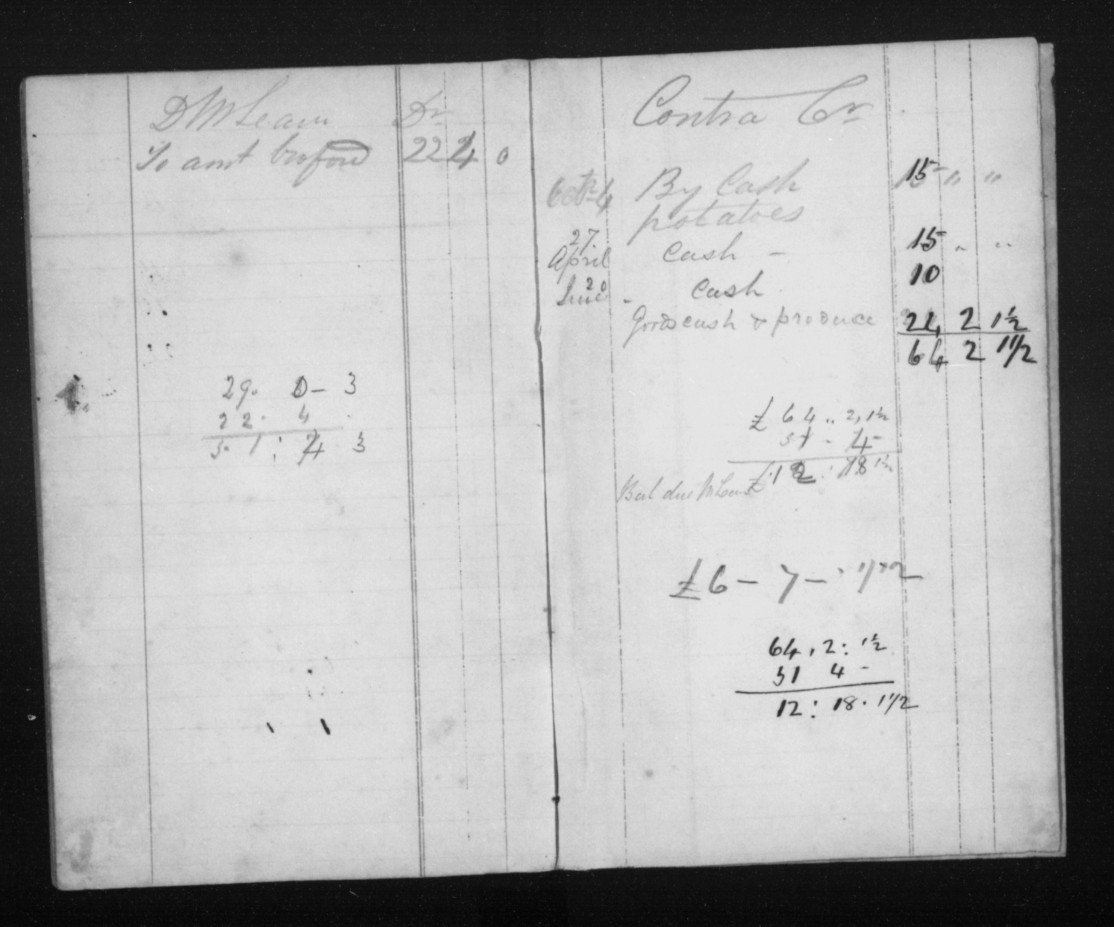 D McLean Dr
To amt bro ford 22 4 0
29. 0 - 3
22. 4 .
51 : 4 3
Contra Cr
Octbr 4 By Cash 15 " "
potatoes
27.
April Cash - 15 " "
20
June - Cash 10
Goods cash & produce 24 2 1½
64 2 1½
£ 64 .. 2, 1½
51 - 4 -
Bal due McLean £12 : 18 1½
£6 - 7 -
64, 2 : 1½
51 4 -
12 : 18 . 1½